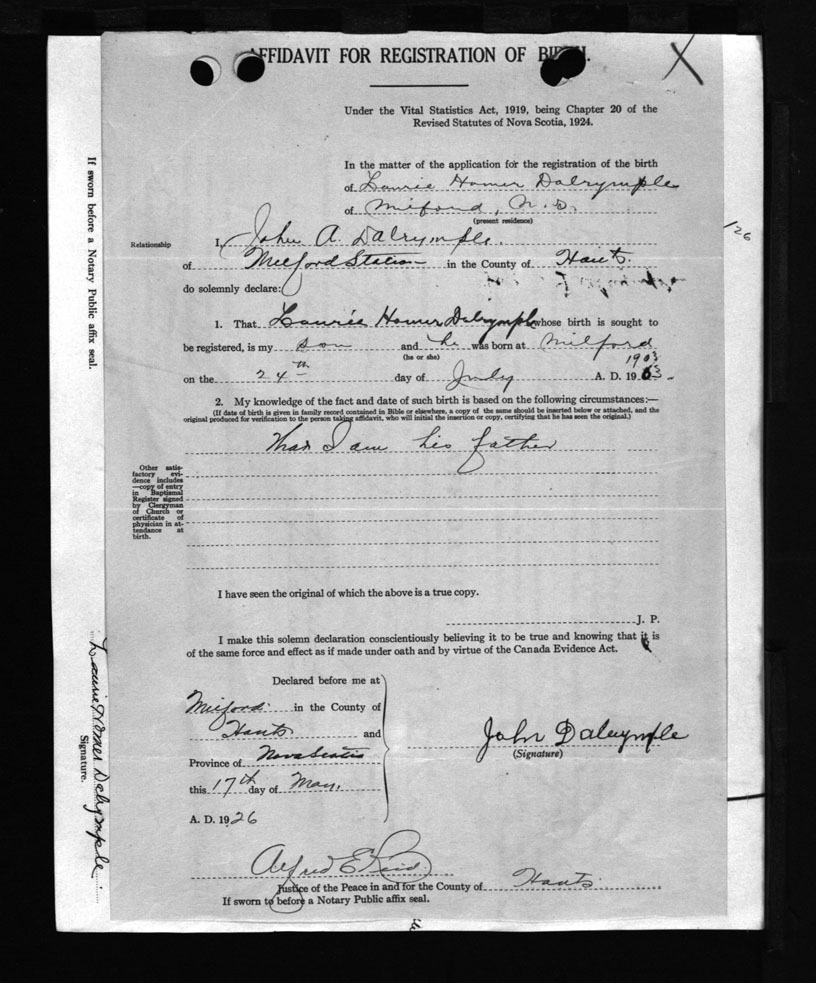 AFFIDAVIT FOR REGISTRATION OF BIRTH.
X
Under the Vital Statistics Act, 1919, being Chapter 20 of the
Revised Statutes of Nova Scotia, 1924.
In the matter of the application for the registration of the birth
of Laurie Homer Dalrymple
of Milford, N.S.
(present residence)
126
Relationship
I, John A. Dalrymple.
of Milford Station in the County of Hants.
do solemnly declare:
1. That Laurie Homer Dalrymple whose birth is sought to
be registered, is my son and he was born at Milford
(he or she)
1903
on the 24th day of July A. D. 1903.
2. My knowledge of the fact and date of such birth is based on the following circumstances:—
(If date of birth is given in family record contained in Bible or elsewhere, a copy of the same should be inserted below or attached, and the
original produced for verification to the person taking affidavit, who will initial the insertion or copy, certifying that he has seen the original.)
That I am his father
Other satis-
factory evi-
dence includes
—copy of entry
in Baptismal
Register signed
by Clergyman
of Church or
certificate of
physician in at-
tendance at
birth.
I have seen the original of which the above is a true copy.
J. P.
I make this solemn declaration conscientiously believing it to be true and knowing that it is
of the same force and effect as if made under oath and by virtue of the Canada Evidence Act.
Declared before me at
Milford in the County of
Hants and
Province of Nova Scotia
this 17th day of May.
A. D. 1926
John Dalrymple
(Signature)
Alfred E. Reid.
Justice of the Peace in and for the County of Hants
If sworn to before a Notary Public affix seal.
If sworn before a Notary Public affix seal.
Laurie Homer Dalrymple
Signature.